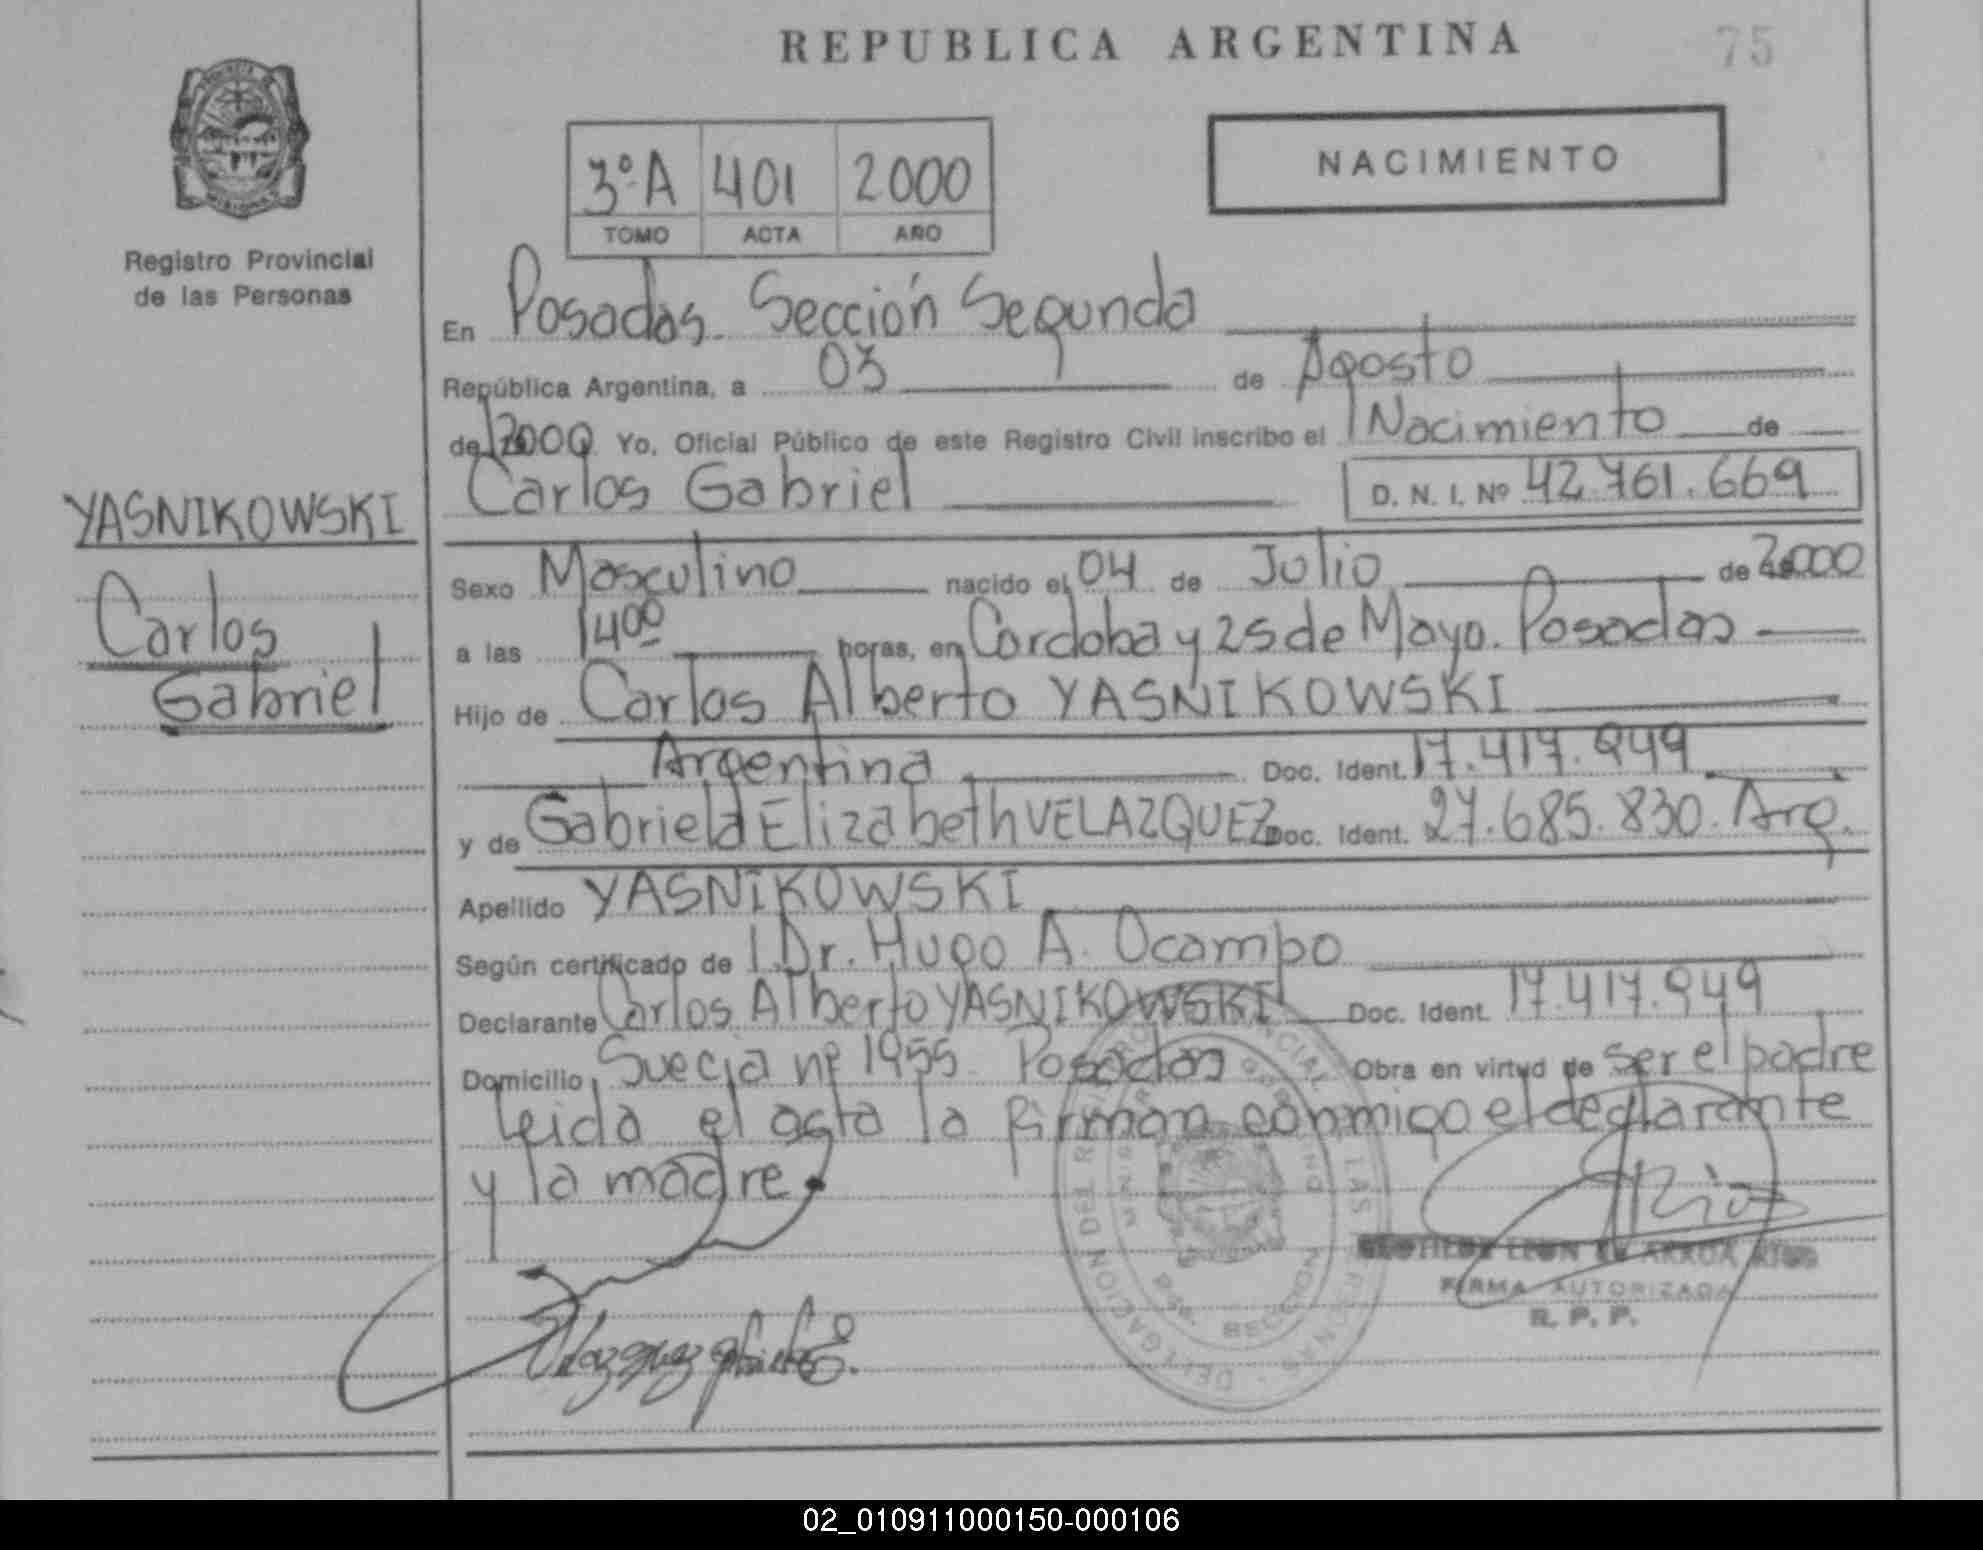 REPUBLICA ARGENTINA
75
NACIMIENTO
3º A 401 2000
TOMO ACTA AÑO
Registro Provincial
de las Personas
En Posadas. Sección Segunda
República Argentina, a 03 de Agosto
de 2000 Yo, Oficial Público de este Registro Civil inscribo el Nacimiento de
Carlos Gabriel D. N. I. Nº 42.761.669
YASNIKOWSKI
Carlos
Gabriel
Sexo Masculino nacido el 04 de Julio de 2000
a las 14⁰⁰ horas, en Cordoba y 25 de Mayo. Posadas
Hijo de Carlos Alberto YASNIKOWSKI
Argentina Doc. Ident. 17.417.949
y de Gabriela Elizabeth VELAZQUEZ Doc. Ident. 27.685.830. Arg.
Apellido YASNIKOWSKI
Según certificado de l Dr. Hugo A. Ocampo
Declarante Carlos Alberto YASNIKOWSKI Doc. Ident. 17.417.949
Domicilio Suecia nº 1955 Posadas Obra en virtud de ser el padre
Leida el acta la firman conmigo el declarante
y la madre.
FIRMA AUTORIZADA
R. P. P.
02_010911000150-000106